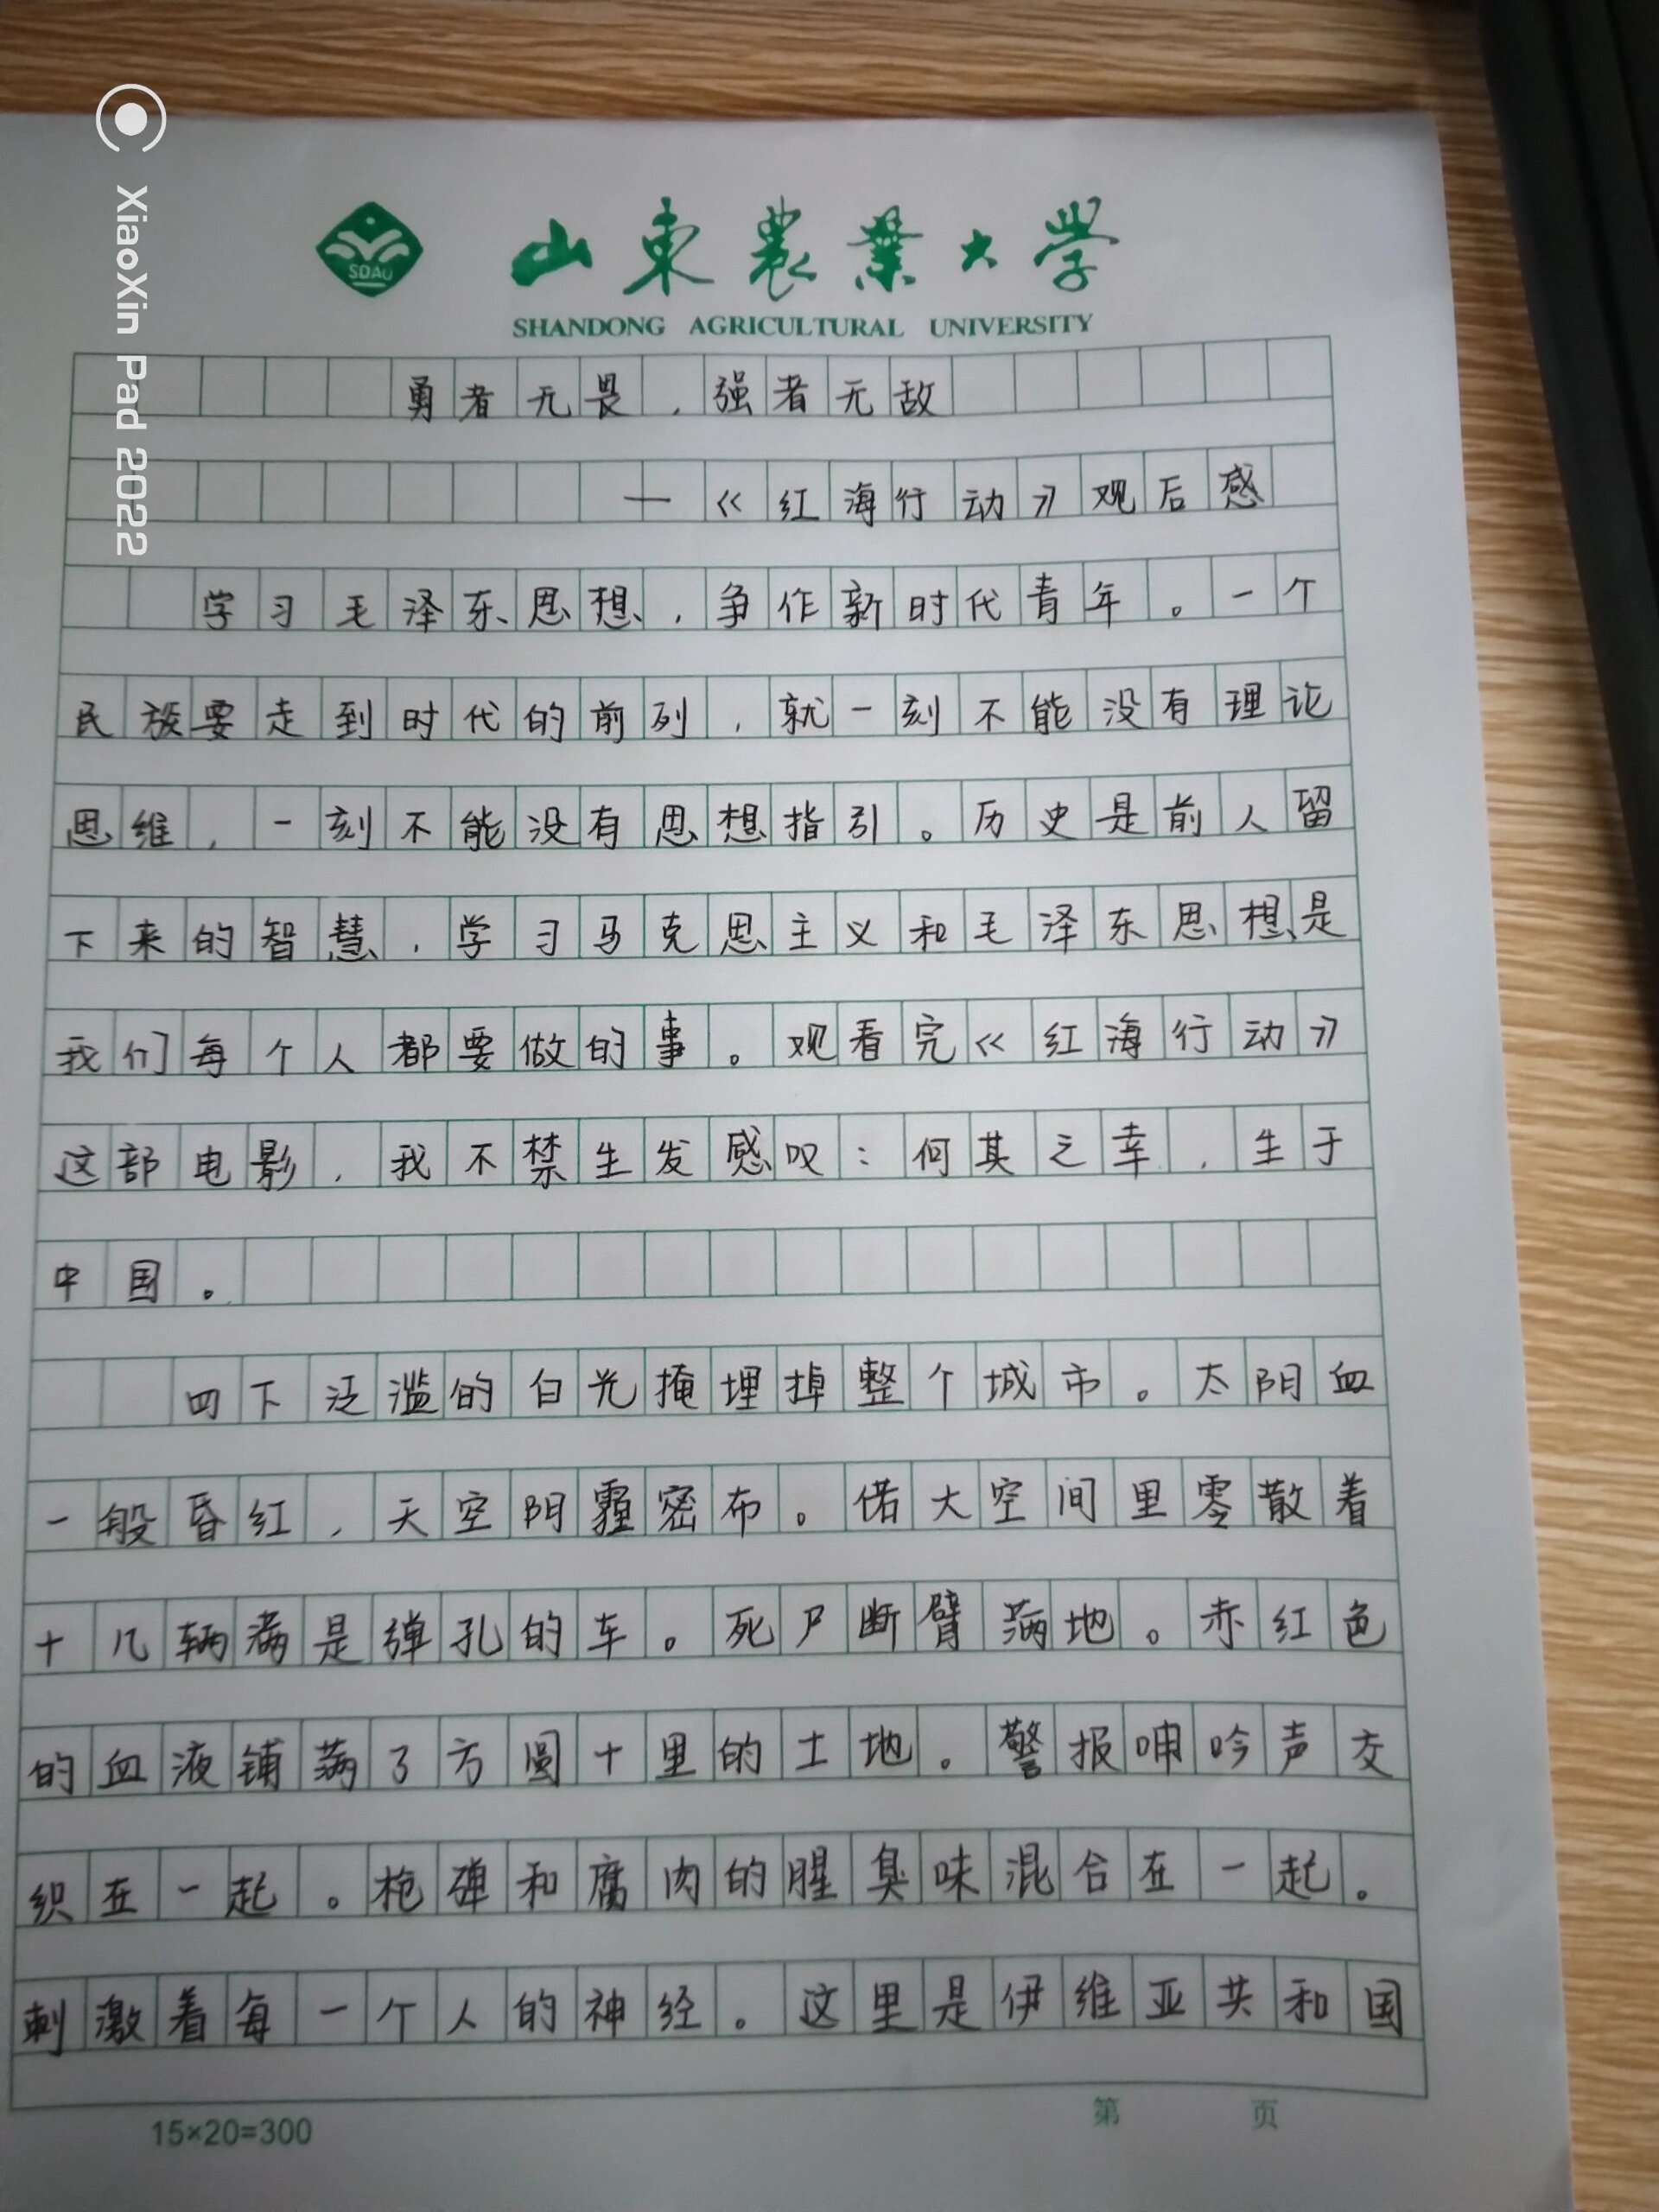 XiaoXin Pad 2022
SDAU
山东农业大学
SHANDONG AGRICULTURAL UNIVERSITY
勇者无畏，强者无敌
—《红海行动》观后感
学习毛泽东思想，争作新时代青年。一个
民族要走到时代的前列，就一刻不能没有理论
思维，一刻不能没有思想指引。历史是前人留
下来的智慧，学习马克思主义和毛泽东思想是
我们每个人都要做的事。观看完《红海行动》
这部电影，我不禁生发感叹：何其之幸，生于
中国。
四下泛滥的白光掩埋掉整个城市。太阳血
一般昏红，天空阴霾密布。偌大空间里零散着
十几辆满是弹孔的车。死尸断臂满地。赤红色
的血液铺满了方圆十里的土地。警报呻吟声交
织在一起。枪弹和腐肉的腥臭味混合在一起。
刺激着每一个人的神经。这里是伊维亚共和国
15×20=300
第 页